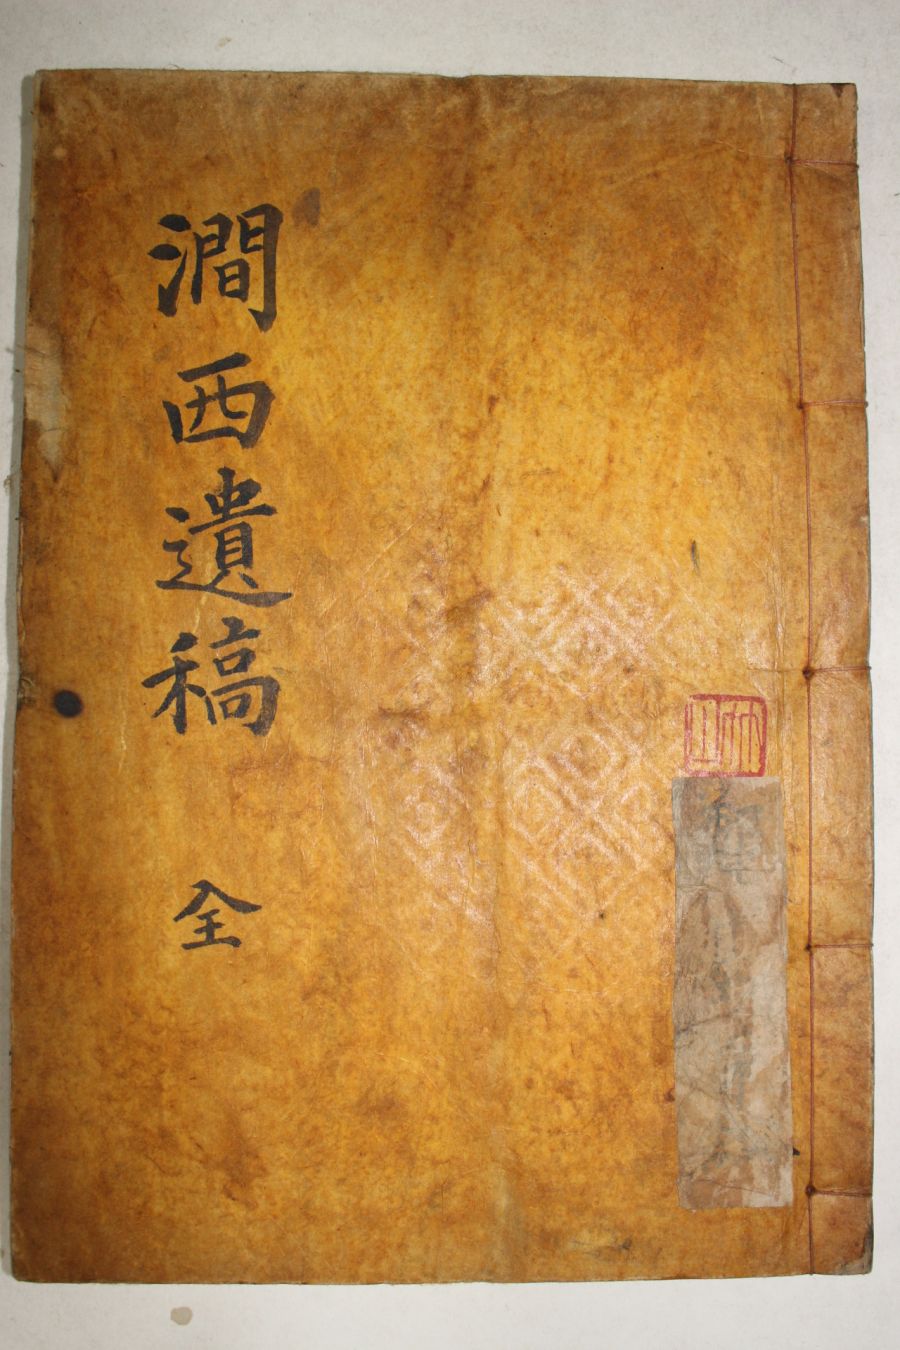 澗西遺稿 全